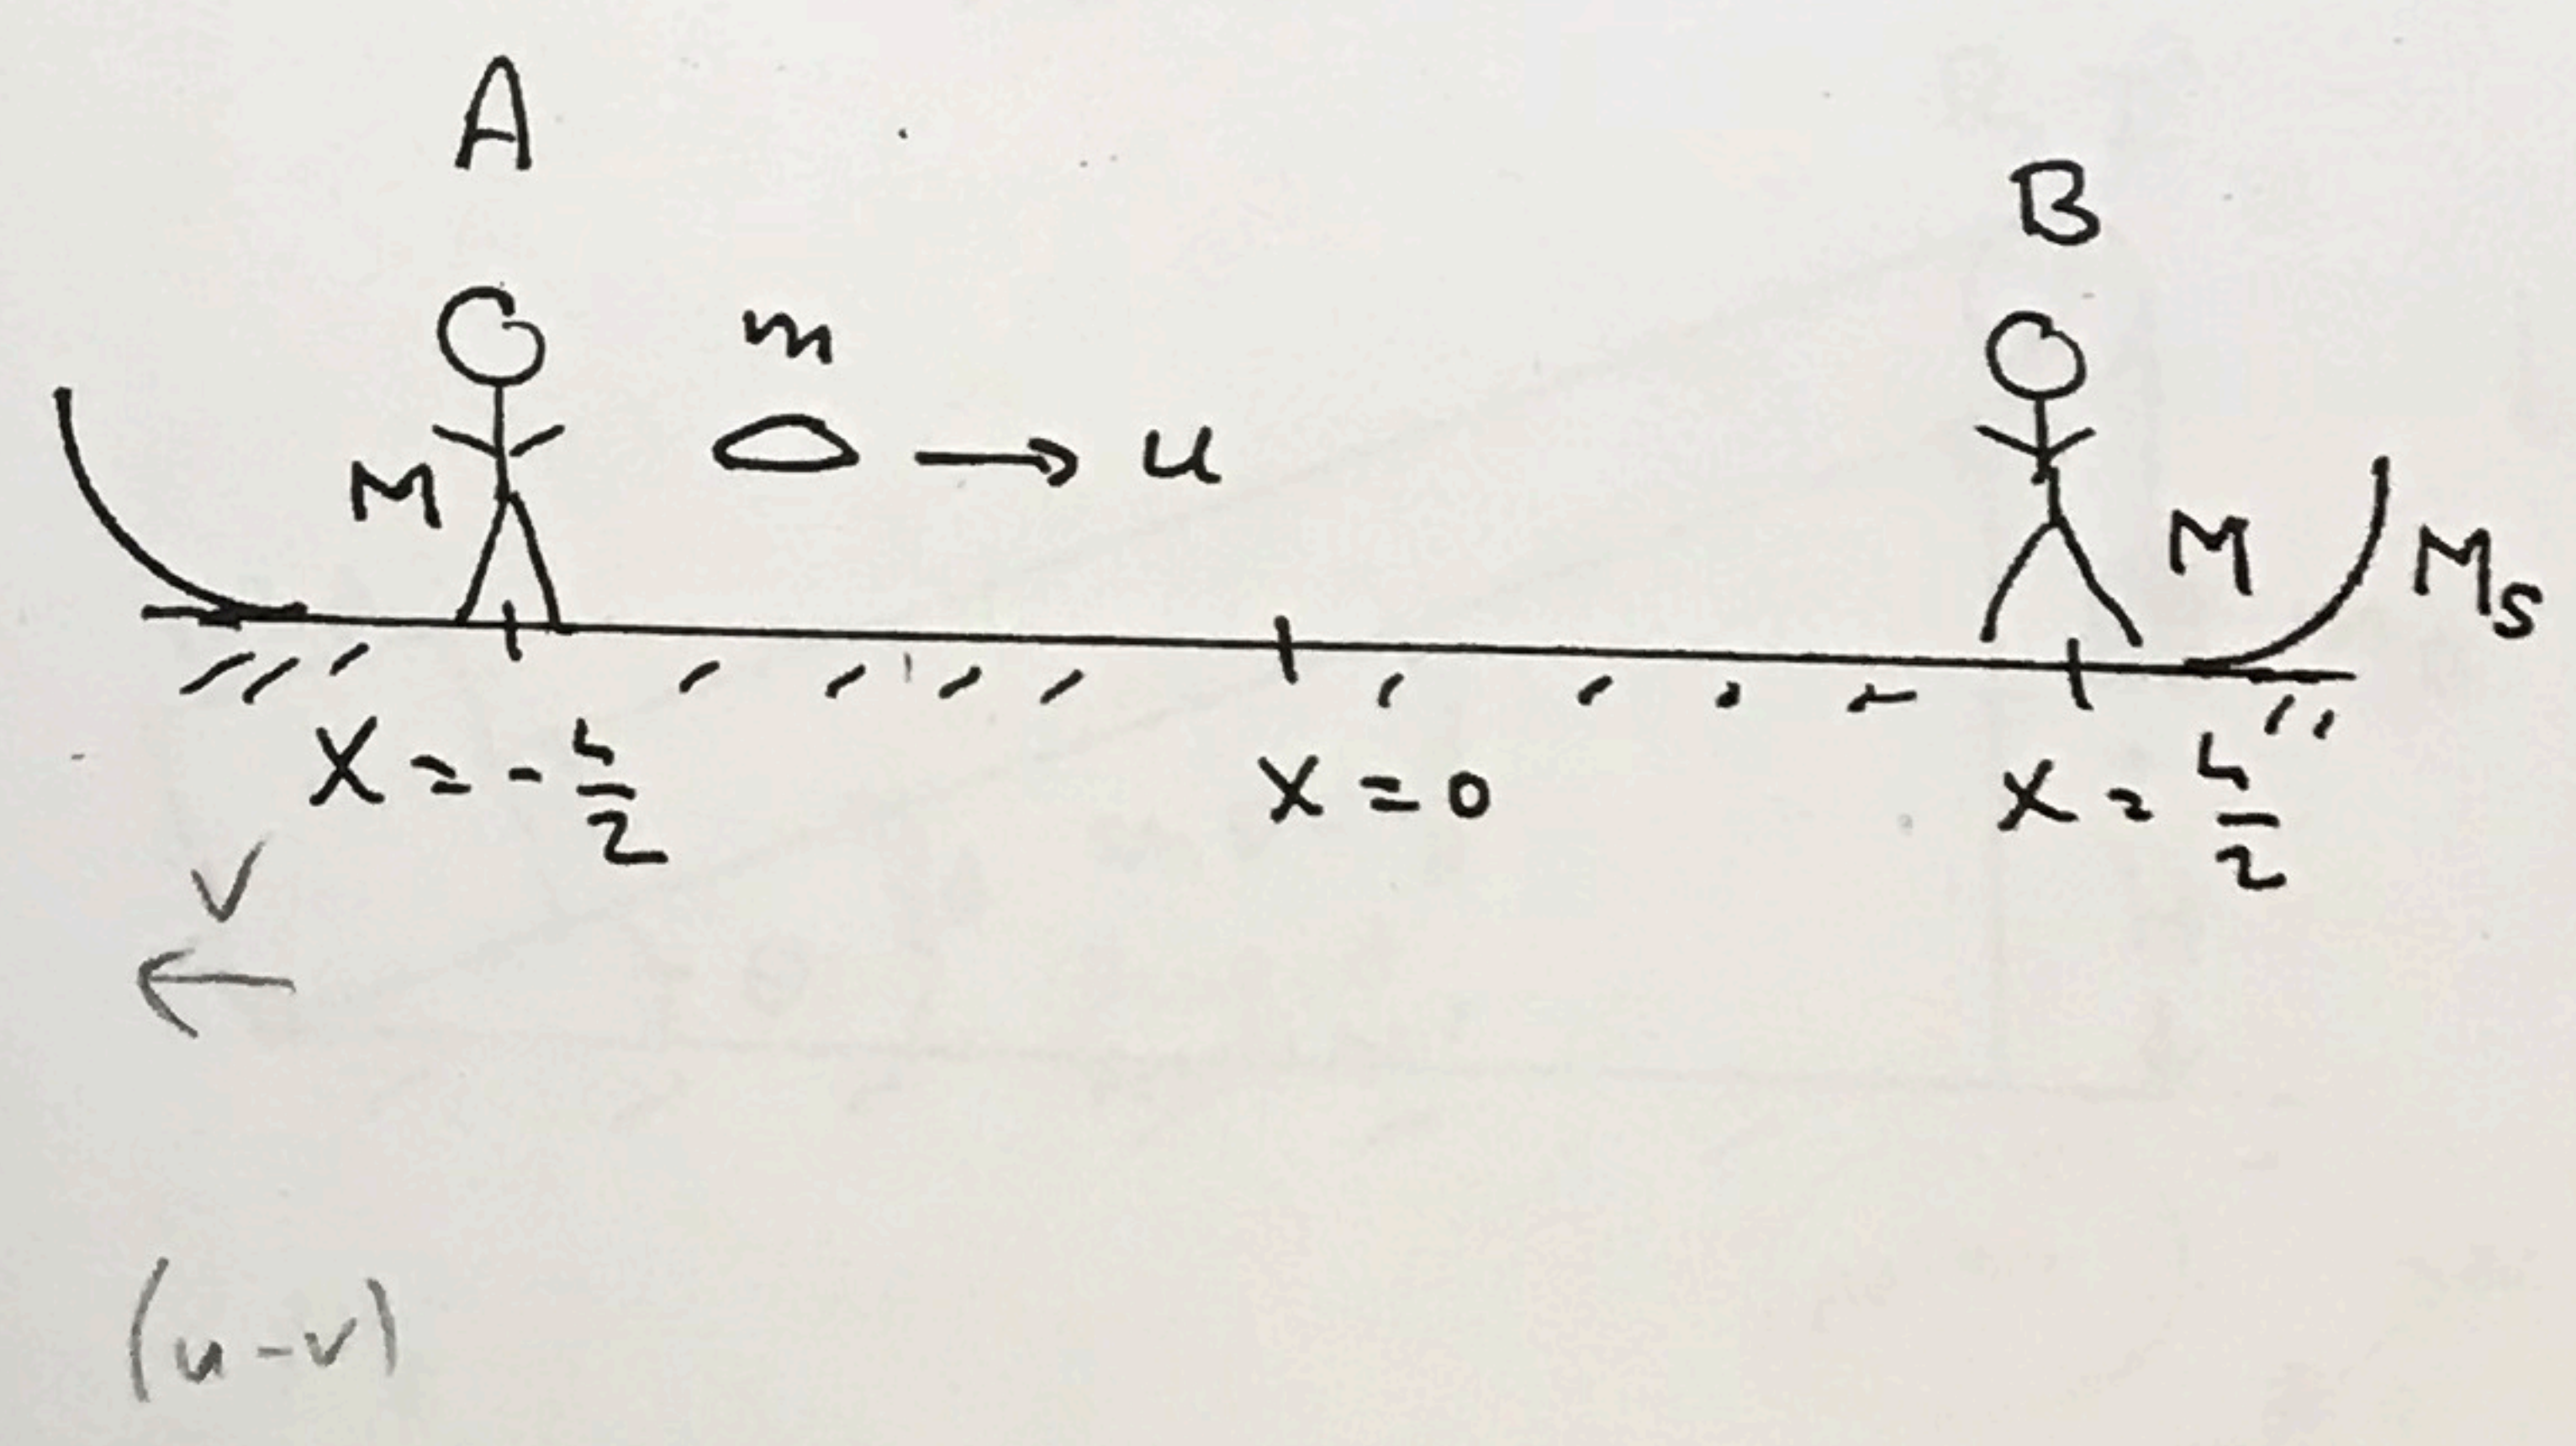 A
B
m
M
u
M
M_s
X = -L/2
X = 0
X = L/2
V
(u-v)